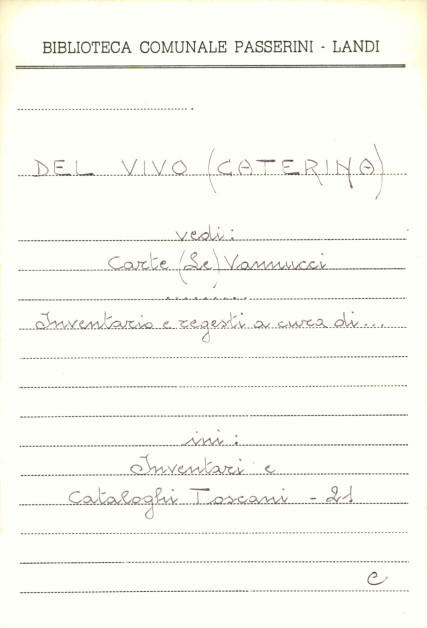 BIBLIOTECA COMUNALE PASSERINI - LANDI
DEL VIVO (CATERINA)
vedi:
Carte (Le) Vannucci
..........
Inventario e regesti a cura di...
ini:
Inventari e
Cataloghi Toscani - 21
C